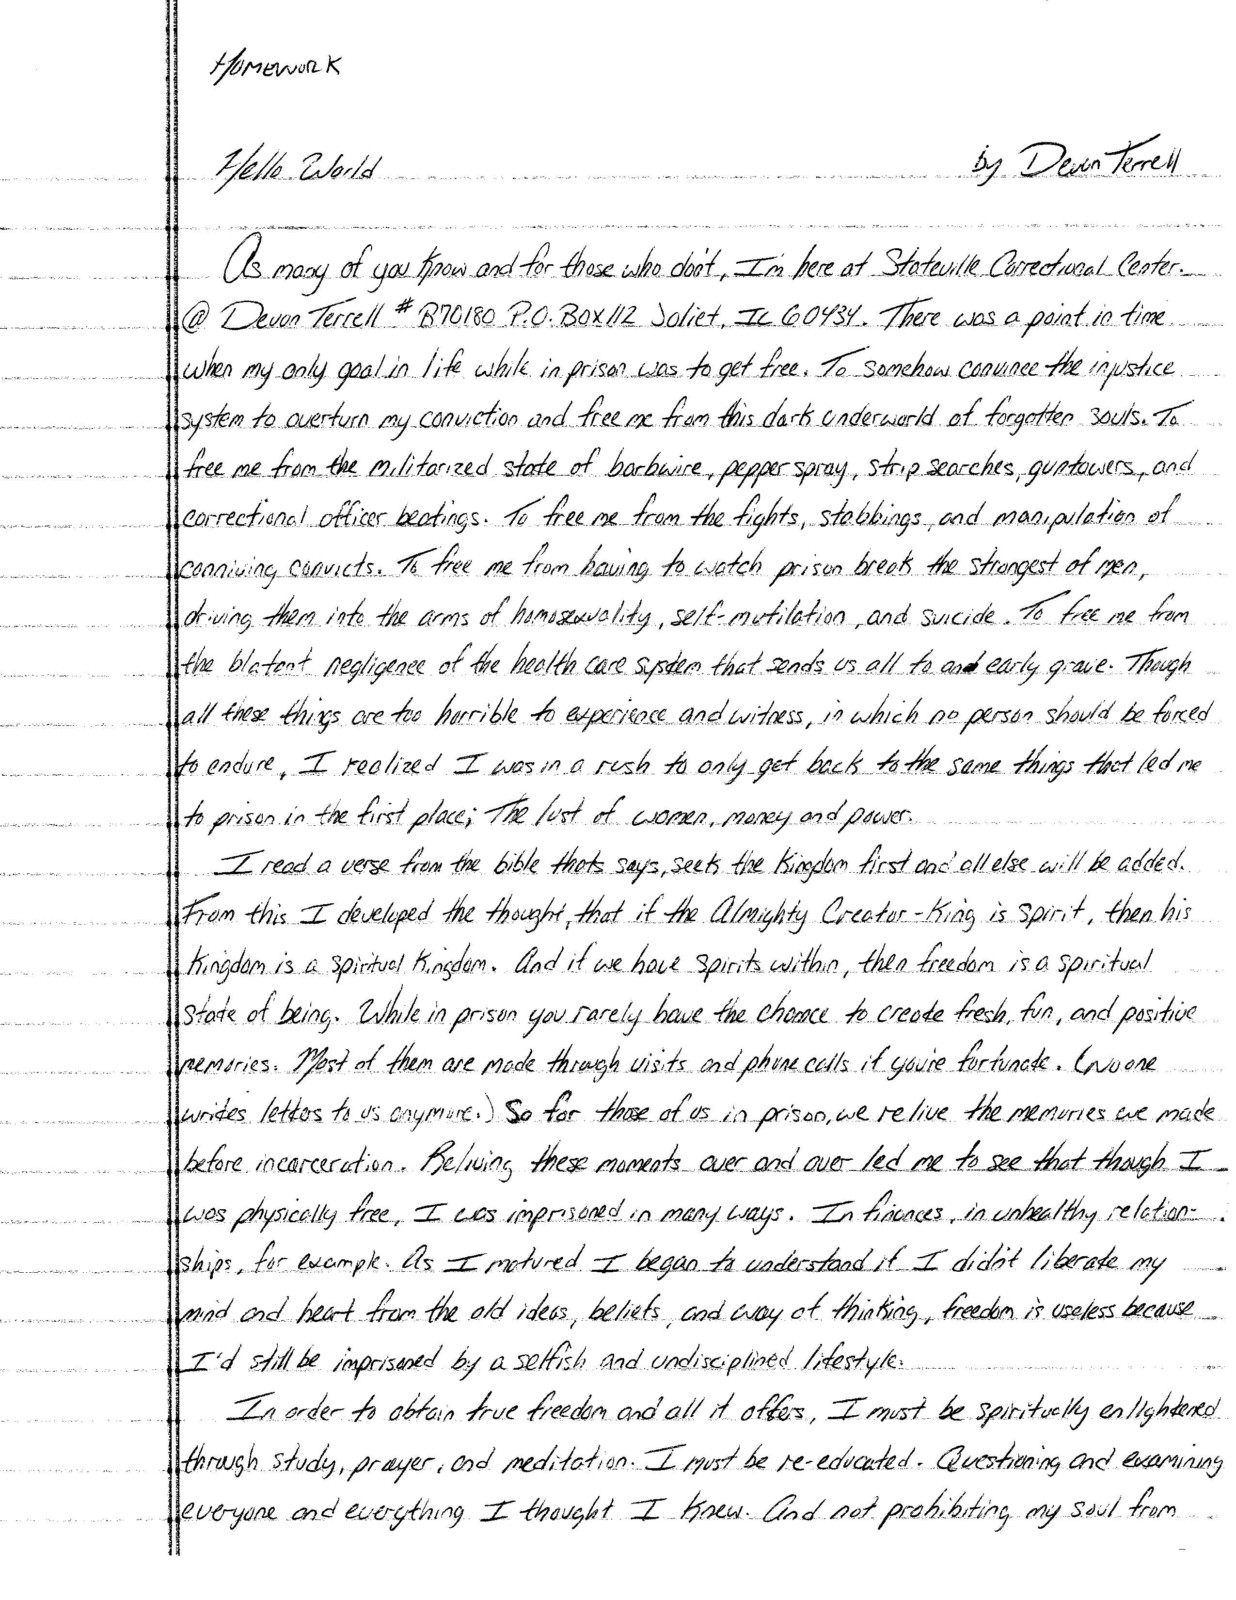 Homework
Hello World by Devon Terrell
As many of you know and for those who don't, I'm here at Stateville Correctional Center.
@ Devon Terrell # B70180 P.O. Box 112 Joliet, IL 60434. There was a point in time
when my only goal in life while in prison was to get free. To somehow convince the injustice
system to overturn my conviction and free me from this dark underworld of forgotten souls. To
free me from the militarized state of barbwire, pepper spray, strip searches, guntowers, and
correctional officer beatings. To free me from the fights, stabbings, and manipulation of
conniving convicts. To free me from having to watch prison break the strongest of men,
driving them into the arms of homosexuality, self-mutilation, and suicide. To free me from
the blatant negligence of the health care system that sends us all to and early grave. Though
all these things are too horrible to experience and witness, in which no person should be forced
to endure, I realized I was in a rush to only get back to the same things that led me
to prison in the first place; The lust of women, money and power.
I read a verse from the bible thats says, seek the Kingdom first and all else will be added.
From this I developed the thought, that if the Almighty Creator-King is spirit, then his
Kingdom is a spiritual Kingdom. And if we have spirits within, then freedom is a spiritual
state of being. While in prison you rarely have the chance to create fresh, fun, and positive
memories. Most of them are made through visits and phone calls if you're fortunate. (No one
writes letters to us anymore.) So for those of us in prison, we relive the memories we made
before incarceration. Reliving these moments over and over led me to see that though I
was physically free, I was imprisoned in many ways. In finances, in unhealthy relation-
ships, for example. As I matured I began to understand if I didn't liberate my
mind and heart from the old ideas, beliefs, and way of thinking, freedom is useless because
I'd still be imprisoned by a selfish and undisciplined lifestyle.
In order to obtain true freedom and all it offers, I must be spiritually enlightened
through study, prayer, and meditation. I must be re-educated. Questioning and examining
everyone and everything I thought I knew. And not prohibiting my soul from